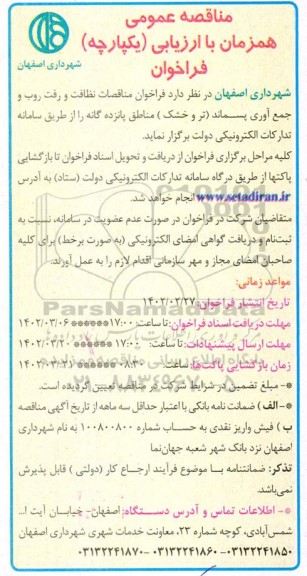 مناقصه عمومی
همزمان با ارزیابی (یکپارچه)
فراخوان
شهرداری اصفهان
شهرداری اصفهان در نظر دارد فراخوان مناقصات نظافت و رفت روب و
جمع آوری پسماند (تر و خشک) مناطق پانزده گانه را از طریق سامانه
تدارکات الکترونیکی دولت برگزار نماید.
کلیه مراحل برگزاری فراخوان از دریافت و تحویل اسناد فراخوان تا بازگشایی
پاکتها از طریق درگاه سامانه تدارکات الکترونیکی دولت (ستاد) به آدرس
www.setadiran.ir انجام خواهد شد.
متقاضیان شرکت در فراخوان در صورت عدم عضویت در سامانه، نسبت به
ثبت‌نام و دریافت گواهی امضای الکترونیکی (به صورت برخط) برای کلیه
صاحبان امضای مجاز و مهر سازمانی اقدام لازم را به عمل آورند.
مواعد زمانی:
تاریخ انتشار فراخوان: ۱۴۰۲/۰۲/۲۷
مهلت دریافت اسناد فراخوان: تا ساعت: ۱۷:۰۰ ****** ۱۴۰۲/۰۳/۰۶
مهلت ارسال پیشنهادات: تا ساعت: ۱۷:۰۰ ****** ۱۴۰۲/۰۳/۲۰
زمان بازگشایی پاکت‌ها: ساعت ۰۸:۳۰ ****** ۱۴۰۲/۰۳/۲۱
*- مبلغ تضمین در شرایط شرکت در مناقصه تعیین گردیده است.
*- الف) ضمانت نامه بانکی با اعتبار حداقل سه ماهه از تاریخ آگهی مناقصه
ب) فیش واریز نقدی به حساب شماره ۱۰۰۸۰۰۸۰۰ به نام شهرداری
اصفهان نزد بانک شهر شعبه جهان‌نما
تذکر: ضمانتنامه با موضوع فرآیند ارجاع کار (دولتی) قابل پذیرش
نمی‌باشد.
*- اطلاعات تماس و آدرس دستگاه: اصفهان- خیابان آیت ا...
شمس‌آبادی، کوچه شماره ۲۳، معاونت خدمات شهری شهرداری اصفهان
۰۳۱۳۲۲۴۱۸۷۰ -۰۳۱۳۲۲۴۱۸۶۰ -۰۳۱۳۲۲۴۱۸۵۰
ParsNamadData